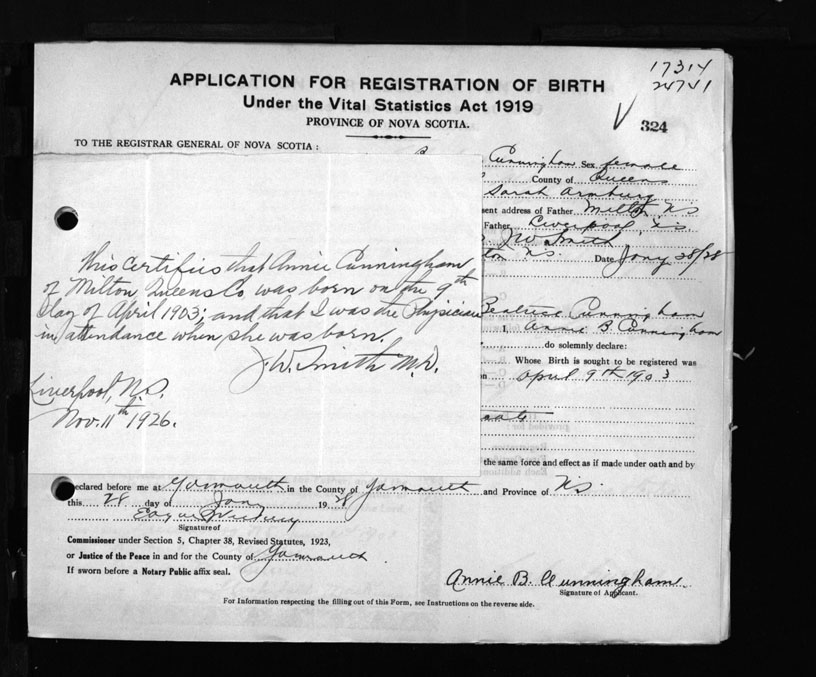 17314
24741
APPLICATION FOR REGISTRATION OF BIRTH
Under the Vital Statistics Act 1919
PROVINCE OF NOVA SCOTIA.
324
TO THE REGISTRAR GENERAL OF NOVA SCOTIA:
Cunningham Sex female
County of Queens
Sarah Armburg
sent address of Father Milton NS
Father Liverpool, NS.
JW Smith
ton NS. Date Jany 28/28
This Certifies that Annie Cunningham
of Milton Queens Co was born on the 9th
day of April 1903; and that I was the Physician
in attendance when she was born.
J.W. Smith M.D.
Liverpool, N.S.
Nov. 11th 1926.
Beatrice Cunningham
I, Annie B Cunningham
do solemnly declare:
Whose Birth is sought to be registered was
on April 9th 1903
the same force and effect as if made under oath and by
Declared before me at Yarmouth in the County of Yarmouth and Province of NS.
this 28 day of Jan 1928
Signature of
Commissioner under Section 5, Chapter 38, Revised Statutes, 1923,
or Justice of the Peace in and for the County of Yarmouth
If sworn before a Notary Public affix seal.
Annie B. Cunningham.
Signature of Applicant.
For Information respecting the filling out of this Form, see Instructions on the reverse side.